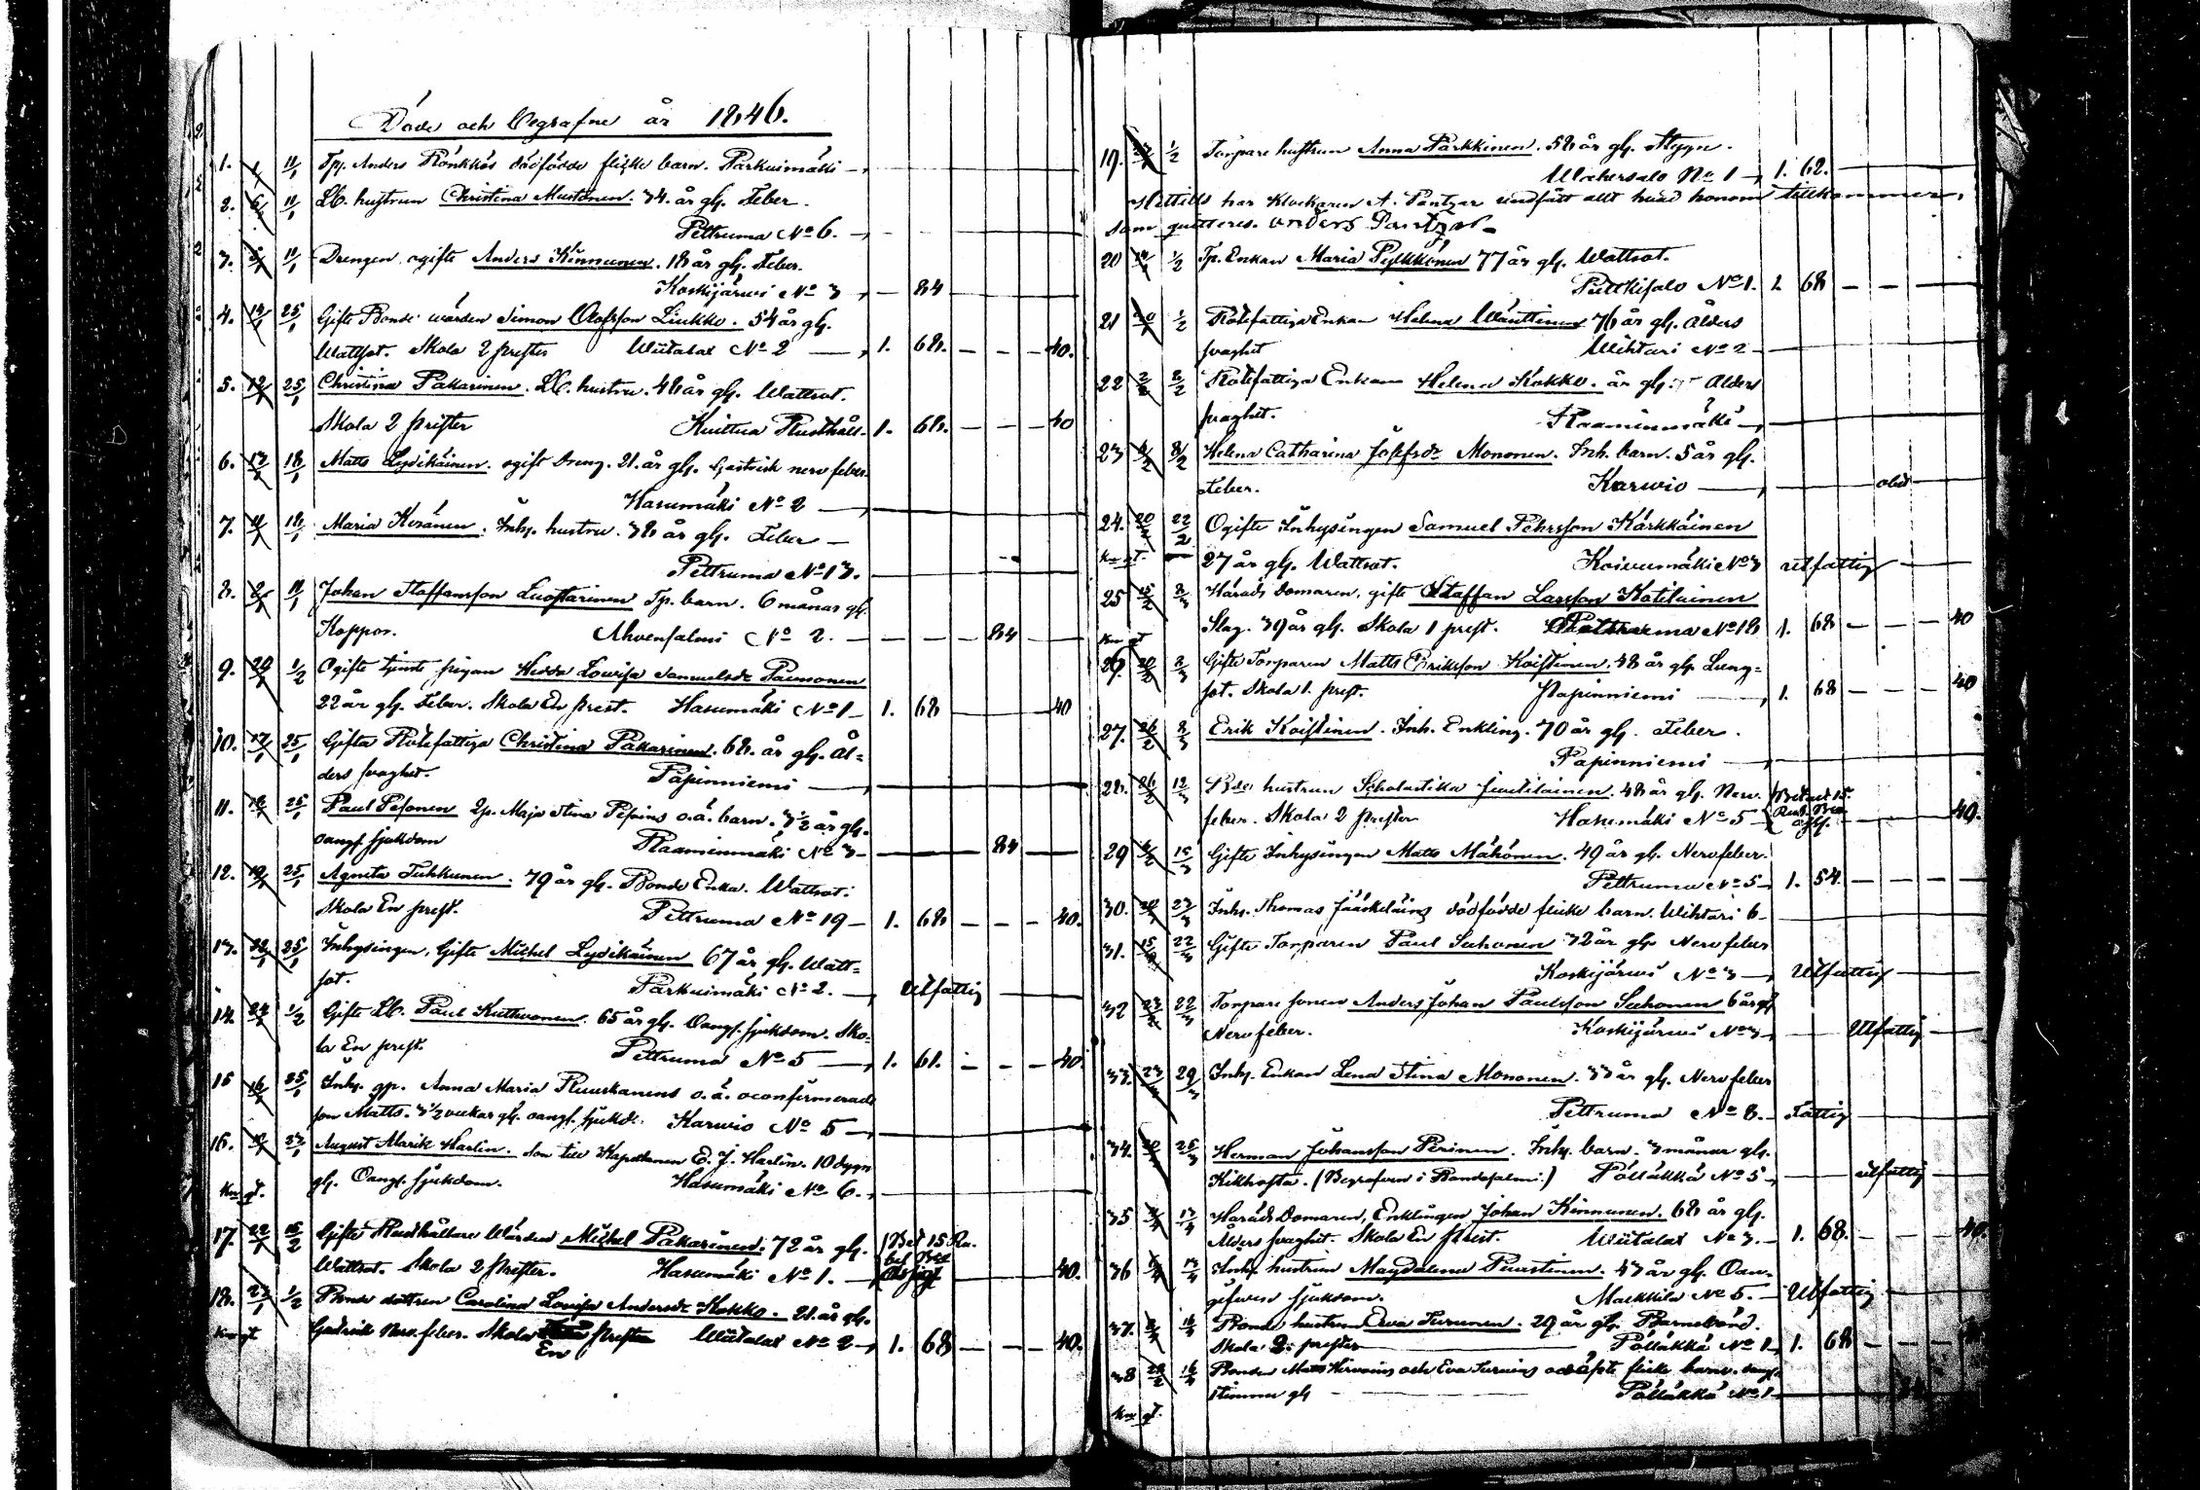 Döde och Begrafne år 1846.
1. 11/1 Tp. Anders Rönkkös dödfödde flicke barn. Parkuimäki
2. 6/1 11/1 Lb. hustrun Christina Mustonen. 34. år gl. Feber.
Pettruma No 6.
3. 11/1 Drengen ogifte Anders Kinnunen. 18 år gl. Feber.
Koskijärwi No 3 — 84
4. 14/1 25/1 Gifte Bonde wärden Simon Olofsson Liukko. 54 år gl.
Wattsot. Skola 2 prester Wiitalax No 2 — 1. 68. — — — 40.
5. 12/1 25/1 Christina Pakarinen. Lb. hustru. 48 år gl. Wattsot.
Skola 2 prister Kuittua Rusthåll 1. 68. — — — 40
6. 13/1 18/1 Matts Lydikäinen. ogift Dreng. 21. år gl. Gastrisk nerv feber
Hasumäki No 2
7. 18/1 Maria Keränen. Inh. hustru. 38 år gl. Feber —
Pettruma No 13.
8. 11/1 Johan Staffansson Luostarinen Tp. barn. 6 månar gl.
Koppor. Ahvensalmi No 2. — 84
9. 24/1 1/2 Ogifte tjenste pigan Hedda Lowisa Samuelsdr Paunonen
22 år gl. Feber. Skola En prest. Hasumäki No 1 1. 68 40
10. 17/1 25/1 Gifta Rotefattiga Christina Pakarinen. 68. år gl. Ål-
ders svaghet. Papinniemi
11. 25/1 Paul Pesonen Lp. Maja Stina Pesoins o.ä. barn. 3 1/2 år gl.
oangf. sjukdom Raaminmäki No 3 — 84
12. 19/1 25/1 Agneta Tuhkunen. 79 år gl. Bonde Enka. Wattsot.
Skola En prest. Pettruma No 19 1. 68 — — — 40.
13. 22/1 25/1 Inhysingen, Gifte Michel Lydikäinen 67 år gl. Watt-
sot. Parkuimäki No 2. Utfattig
14. 24/1 1/2 Gifte Lb. Paul Kuthvonen. 65 år gl. Oangf. sjukdom. Sko-
la En prest. Pettruma No 5 — 1. 61. — — — 40.
15 16/1 25/1 Inh. gp. Anna Maria Ruuskanens o.ä. oconfirmerade
son Matts. 3 1/2 veckar gl. oangf. sjukd. Karwio No 5
16. August Marik Harlin. Son till Kapellanen E. J. Harlin. 10 dygn
Km gt. gl. Oangf. sjukdom. Hasumäki No 6.
17. 22/1 15/2 Gifte Rusthållare Wärden Michel Pakarinen. 72 år gl. Bet 15 Ru.
Wattsot. Skola 2 Prister. Hasumäki No 1. 40.
18. 23/1 1/2 Bonde dottren Carolina Lovisa Andersdr Kokko. 21. år gl.
Km gt Gastrisk Nerv feber. Skola prester Wiitalax No 2 1. 68 — — — 40.
En
19. 1/2 Torpare hustrun Anna Parkkinen. 58 år gl. Stygn.
Wehersalo No 1 1. 62.
Hittills har Klockaren A. Pantzar undfått allt hwad honom tillkommer,
som quitteras. Anders Pantzar
20 1/2 Tp. Enkan Maria Pylkkönen 77 år gl. Wattsot.
Putkisalo No 1. 1. 68 — — — —
21 1/2 Rotefattiga Enkan Helena Wänttinen 76 år gl. Ålders
svaghet Wihtari No 2
22 2/2 8/2 Rotefattiga Enkan Helena Kokko. år gl. Ålders
svaghet. Raaminmäki
23 8/2 Helena Catharina Josefsdr Mononen. Inh. barn. 5 år gl.
Feber. Karwio
24. 20/2 22/2 Ogifte Inhysingen Samuel Pehrsson Kärkkäinen
Km gt. 27 år gl. Wattsot. Koivumäki No 3 utfattig
25 15/2 Härads Domaren, gifte Staffan Larsson Katilainen
Km gt Slag. 79 år gl. Skola 1 prest. Pettruma No 18 1. 68 — — — 40
26. Gifte Torparen Matts Eriksson Koistinen. 48 år gl. Lung-
sot. Skola 1. prest. Papinniemi 1. 68 — — — 40
27. 26/2 Erik Koistinen. Inh. Enkling. 70 år gl. Feber.
Papinniemi
28. 26/2 12/3 Bde hustrun Scholastika Juutilainen. 48 år gl. Nerv.
feber. Skola 2 prester Hasumäki No 5 40.
29 15/3 Gifte Inhysingen Matts Mähönen. 49 år gl. Nervfeber.
Pettruma No 5 1. 54. — — — —
30. Inh. Thomas Jääskeläins dödfödde flicke barn. Wihtari 6
31. 15/3 22/3 Gifte Torparen Paul Suhonen 32 år gl. Nervfeber
Koskijärwi No 3 Utfattig
32 22/3 Torpare sonen Anders Johan Paulsson Suhonen 6 år gl
Nervfeber. Koskijärwi No 3 — Utfattig
33. 23/3 29/3 Inh. Enkan Lena Stina Mononen. 33 år gl. Nervfeber
Pettruma No 8. Fattig
34. 25/3 Herman Johansson Perinen. Inh. barn. 3 månar gl.
Kikhosta. (Begrafven i Randasalmi) Pölläkkä No 5 utfattig
35 Härads Domaren, Enklingen Johan Kinnunen. 68 år gl.
Ålders svaghet. Skola En prest. Wiitalax No 3. 1. 68. — — — 40.
36 Inh. hustrun Magdalena Puustinen. 43 år gl. Oan-
gifwen sjukdom. Markkila No 5. Utfattig
37. Bonde hustrun Eva Turunen. 29 år gl. Barnsbörd.
Skola 2 prester Pölläkkä No 1 1. 68 — — — —
38 Bonden Matts Hirvoins och Eva Turuins odöpte flicke barn.
timme gl Pölläkkä No 1
Km gt.